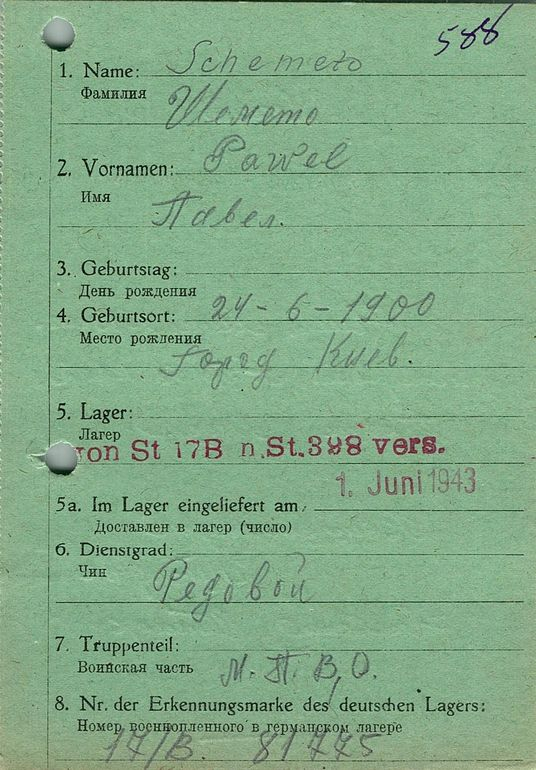 588
1. Name: Schemeto
Фамилия
Шемето
2. Vornamen: Pawel
Имя
Павел.
3. Geburtstag:
День рождения
4. Geburtsort: 24-6-1900
Место рождения
Горгд Киев.
5. Lager:
Лагер
von St 17B n.St.398 vers.
1. Juni 1943
5a. Im Lager eingeliefert am
Доставлен в лагер (число)
6. Dienstgrad:
Чин
Редовой
7. Truppenteil:
Воинская часть
М.П.В.О.
8. Nr. der Erkennungsmarke des deutschen Lagers:
Номер военнопленного в германском лагере
17/B. 81775